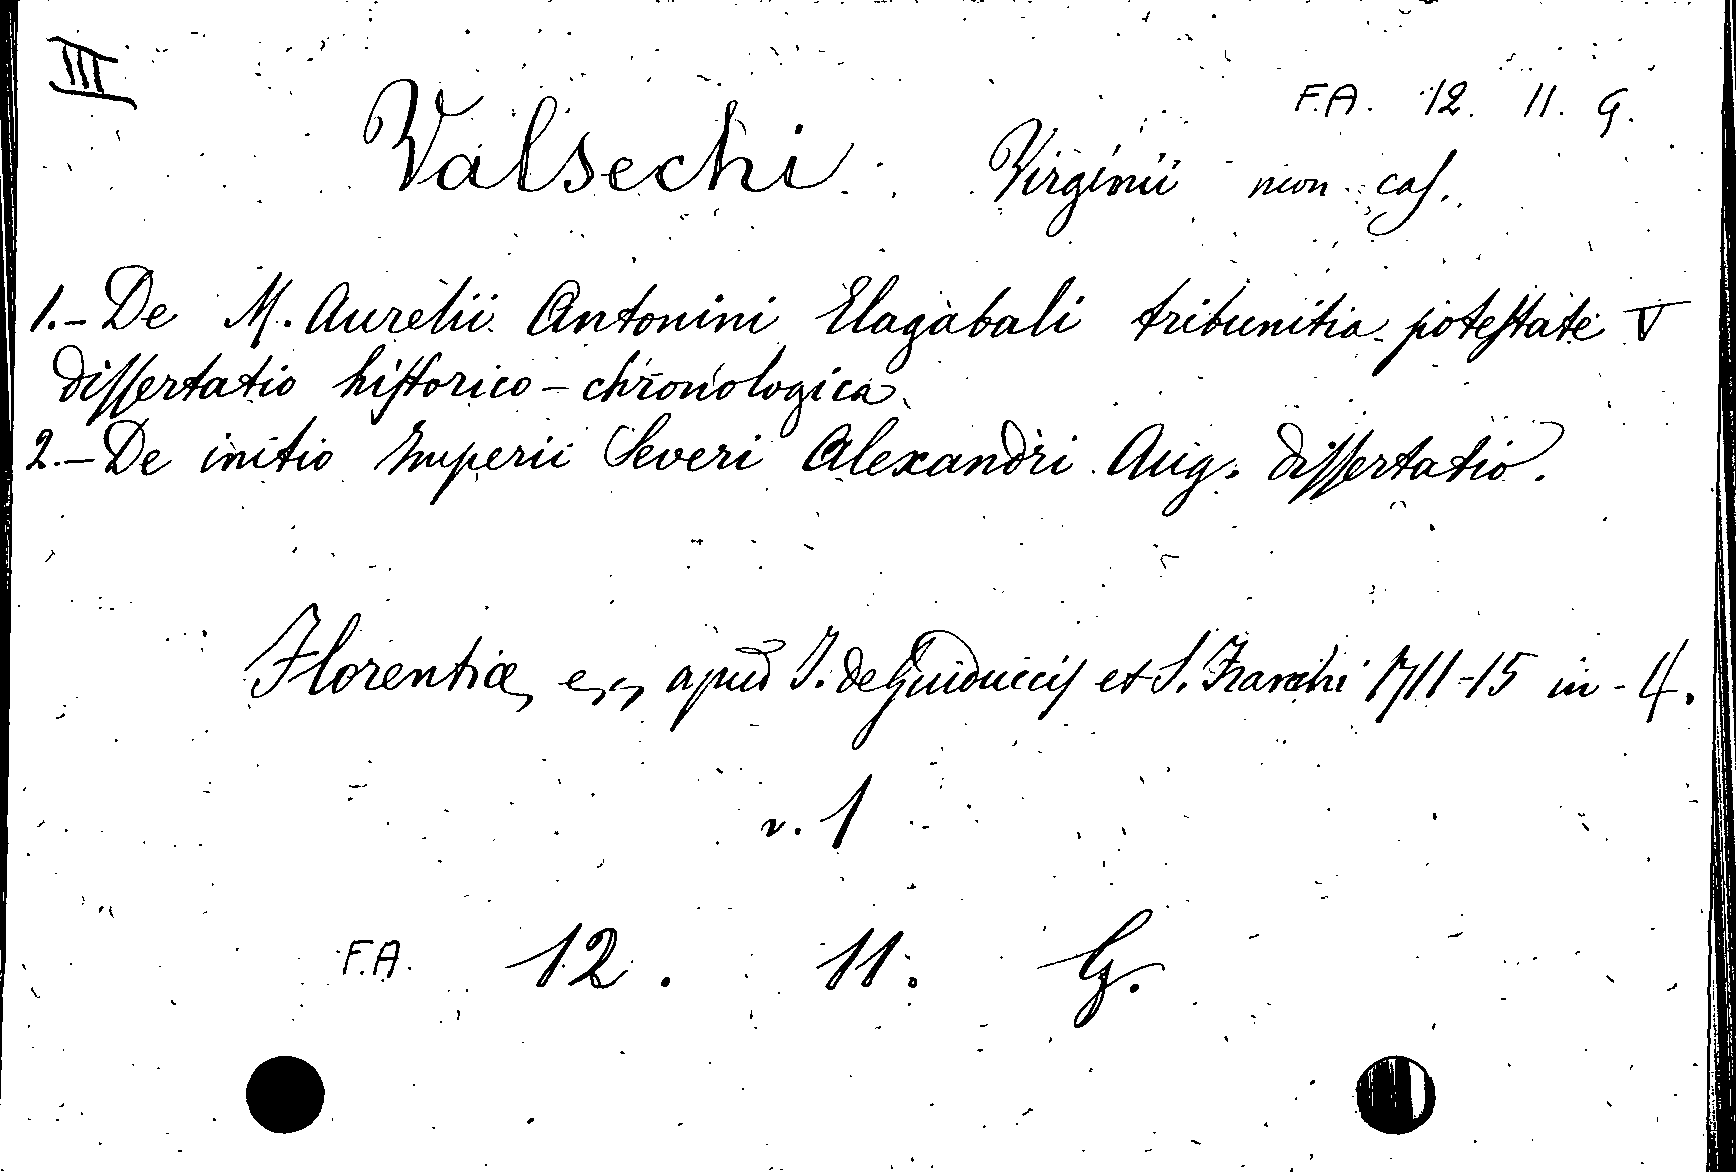 III
F.A. 12. 11. G.
Valsechi Virginii mon. cas.
1.- De M. Aurelii Antonini Elagabali tribunitia potestate V
dissertatio historico-chronologica
2.- De initio Imperii Severi Alexandri Aug. dissertatio.
Florentiæ, apud J. de Guiduccis et S. Franchi 1711-15 in-4.
v. 1
F.A. 12. 11. G.